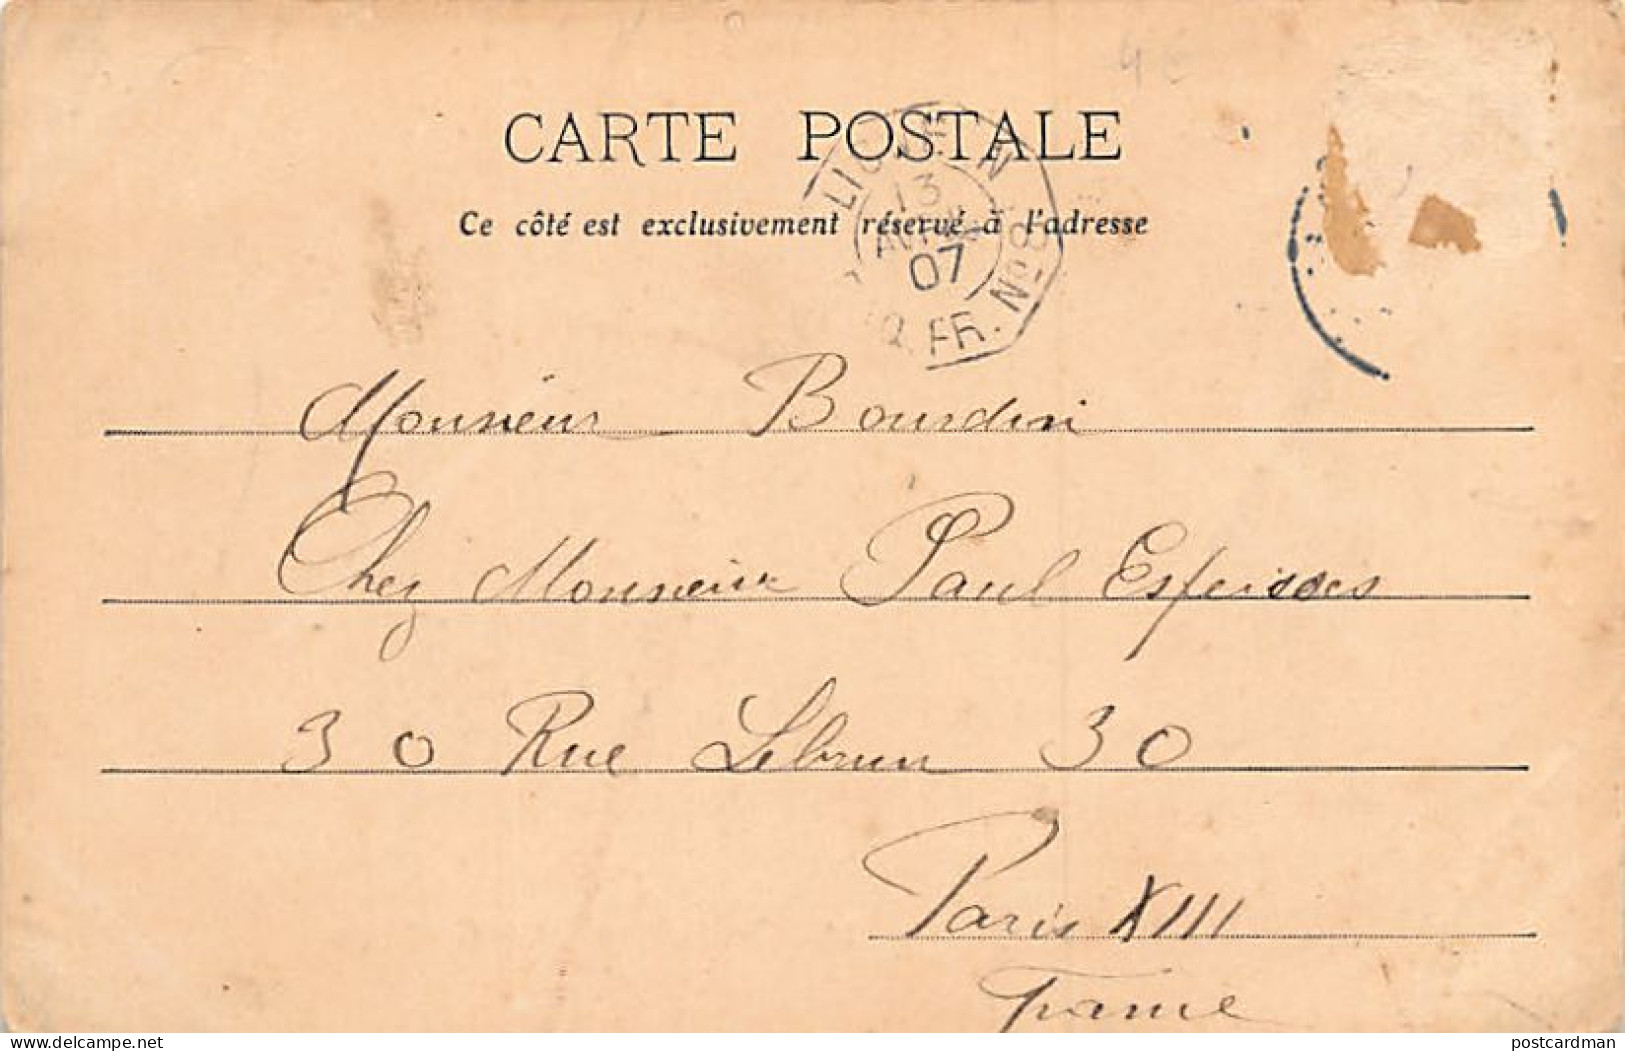 4 €
CARTE POSTALE
Ce côté est exclusivement réservé à l'adresse
LIGNE N
13
AVRIL
07
Q. FR. Nº 8
Monsieur Bourdin
Chez Monsieur Paul
30 Rue Lebrun 30
Paris XIII
France
postcardman